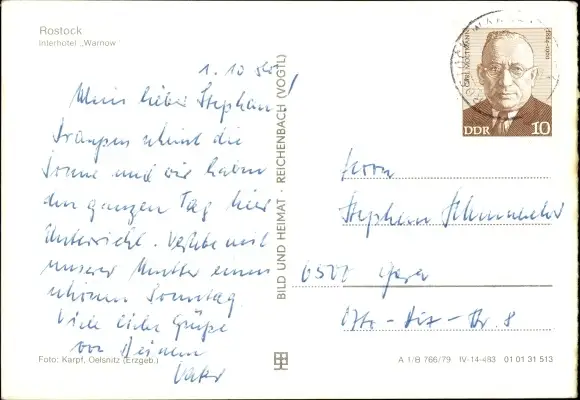 Rostock
Interhotel „Warnow"
1. 10
Mein lieber Stephan!
draußen scheint die
Sonne und wir haben
den ganzen Tag hier
Unterricht. Verlebe mit
unserer Mutter einen
schönen Sonntag.
Viele liebe Grüße
von Deinem
Vater
Foto: Karpf, Oelsnitz (Erzgeb.)
BILD UND HEIMAT · REICHENBACH (VOGTL)
DDR 10
Herrn
Stephan Schumacher
6500 Gera
Otto-Dix-Str. 8
A 1/B 766/79 IV-14-483 01 01 31 513